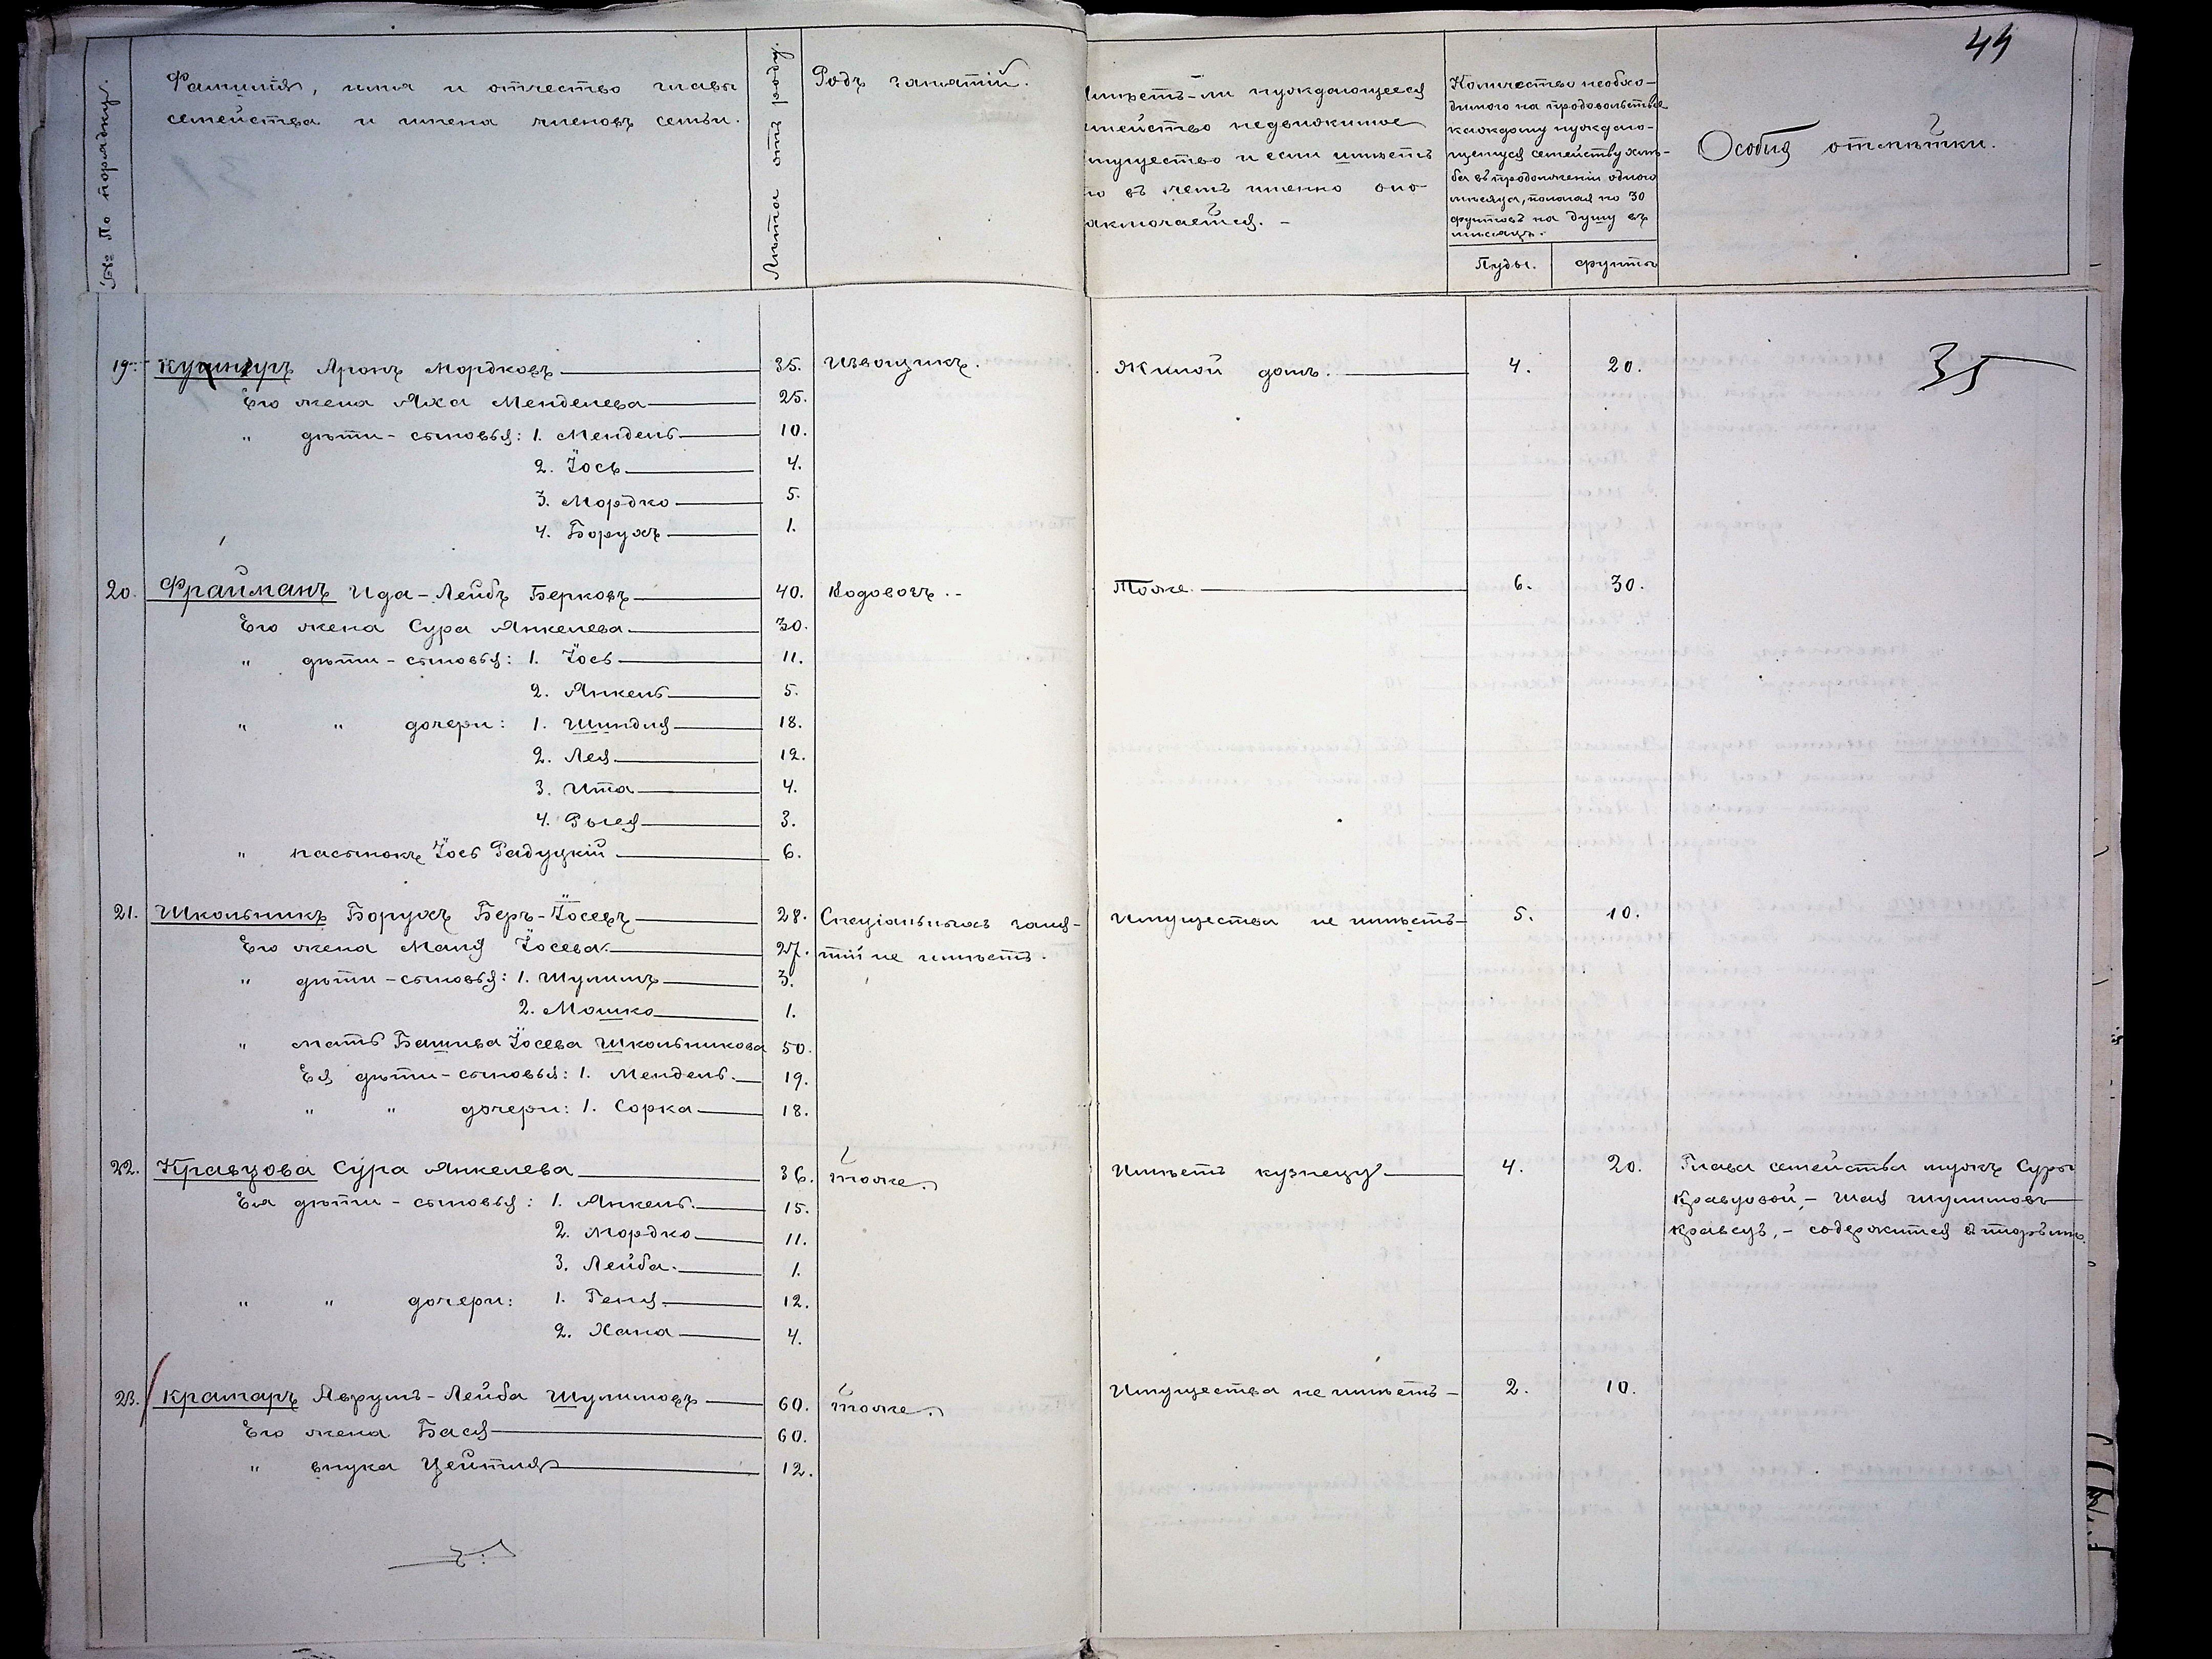 44
№№ По порядку.
Фамилія, имя и отчество главы
семейства и имена членовъ семьи.
Лѣта отъ роду.
Родъ занятій.
Имѣетъ-ли нуждающееся
семейство недвижимое
имущество и если имѣетъ
то въ чемъ именно оно
заключается. -
Количество необхо-
димого на продовольствіе
каждому нуждаю-
щемуся семейству хлѣ-
ба въ продолженіи одного
мѣсяца, полагая по 30
фунтовъ на душу въ
мѣсяцъ.
Пуды.
Фунты
Особыя отмѣтки.
35
19. Аронъ Мордковъ 35. Извощикъ. Жилой домъ. 4. 20.
Его жена Хая Менделева 25.
" дѣти - сыновья: 1. Мендель 10.
2. Іось 4.
3. Мордко 5.
4. Борухъ 1.
20. Фрайманъ Ида-Лейбъ Берковъ 40. Водовозъ. - Тоже. 6. 30.
Его жена Сура Янкелева 30.
" дѣти - сыновья: 1. Іось 11.
2. Янкель 5.
" " дочери: 1. Шиндля 18.
2. Лея 12.
3. Ита 4.
4. 3.
" пасынокъ Іось Радуцкій 6.
21. Школьникъ Борухъ Беръ-Іосевъ 28. Спеціальныхъ заня- Имущества не имѣетъ 5. 10.
Его жена Маня Іосева. 27. тій не имѣетъ.
" дѣти - сыновья: 1. Шулимъ 3.
2. Мошко 1.
" мать Башива Іосева Школьникова 50.
Ея дѣти - сыновья: 1. Мендель. 19.
" " дочери: 1. Сорка 18.
22. Кравцова Сура Янкелева 36. тоже. Имѣетъ кузнецу 4. 20. Глава семейства мужъ Суры
Ея дѣти - сыновья: 1. Янкель. 15. Кравцовой, - Шая Шулимовъ
2. Мордко 11. Кравецъ, - содержится въ тюрьмѣ.
3. Лейба. 1.
" " дочери: 1. Геня. 12.
2. Хана 4.
23. Крамаръ Аврумъ-Лейба Шулимовъ 60. тоже. Имущества не имѣетъ - 2. 10.
Его жена Бася 60.
" внука Цейтля 12.